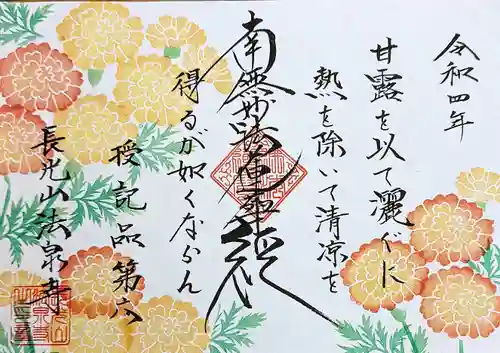 令和四年
甘露を以て灑ぐに
熱を除いて清凉を
南無妙法蓮華経
得るが如くならん
授記品第六
長光山法泉寺